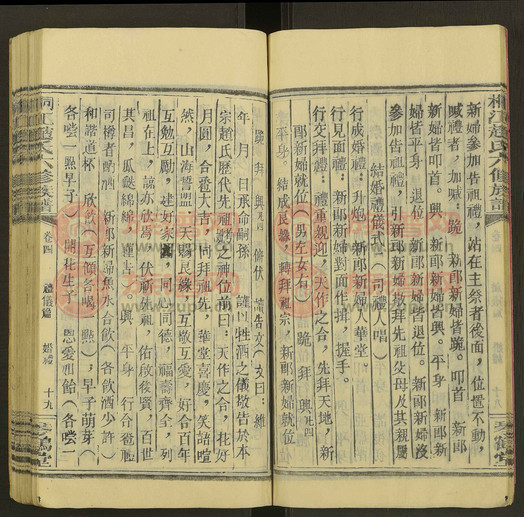 湘江趙氏六修族譜
新婦參加告祖禮，站在主祭者後面，位置不動，
喊禮者，加喊：跪　新郎新婦皆跪。叩首　新郎
新婦皆叩首。興　新郎新婦皆興。平身　新郎新
婦皆平身　退位　新郎新婦皆退位。新郎新婦沒
參加告祖禮，引新郎新婦敬拜先祖父母及其親屬
結婚禮儀式（司禮唱）
行成婚禮：升炮　新郎新婦入華堂。
行見面禮：新郎新婦對面作揖，握手。
行交拜禮：禮重親迎，天作之合，先拜天地，新
郎新婦就位（男左女右）跪　拜　興凡四
平身　結成良緣，同拜祖宗，新郎新婦就位
跪　拜　興凡四　俯伏　讀告文（文曰：維
年　月　日承命嗣孫　謹以牲酒之儀敬告於本
宗趙氏歷代先祖　之神位前曰：天作之合，花好
月圓，合巹大吉，同拜祖先，華堂喜慶，笑語喧
然，山海誓盟，天賜良緣，互敬互愛，好合百年
互勉互勵，建好家園，同心同德，福壽齊全，列
祖在上，諒亦欣焉，伏祈施祖，佑啟後賢，百世
其昌，瓜瓞綿綿，謹告。）興　平身　行合巹禮
司樽者酌酒　新郎新婦魚水合飲（各飲酒少許）
和諧道杯　欣飲（互傾各喝一點）；早子萌芽（
各嘗一點早子）　開花生子　恩愛相飴（各嘗一
卷四　禮儀篇　婚禮　十九
琴鶴堂